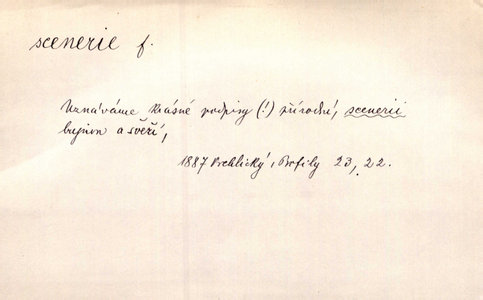 scenerie f.
Uznáváme krásné podpisy (!) přírodní, scenerii
bujnou a svěží,
1887 Vrchlický, Profily 23, 22.